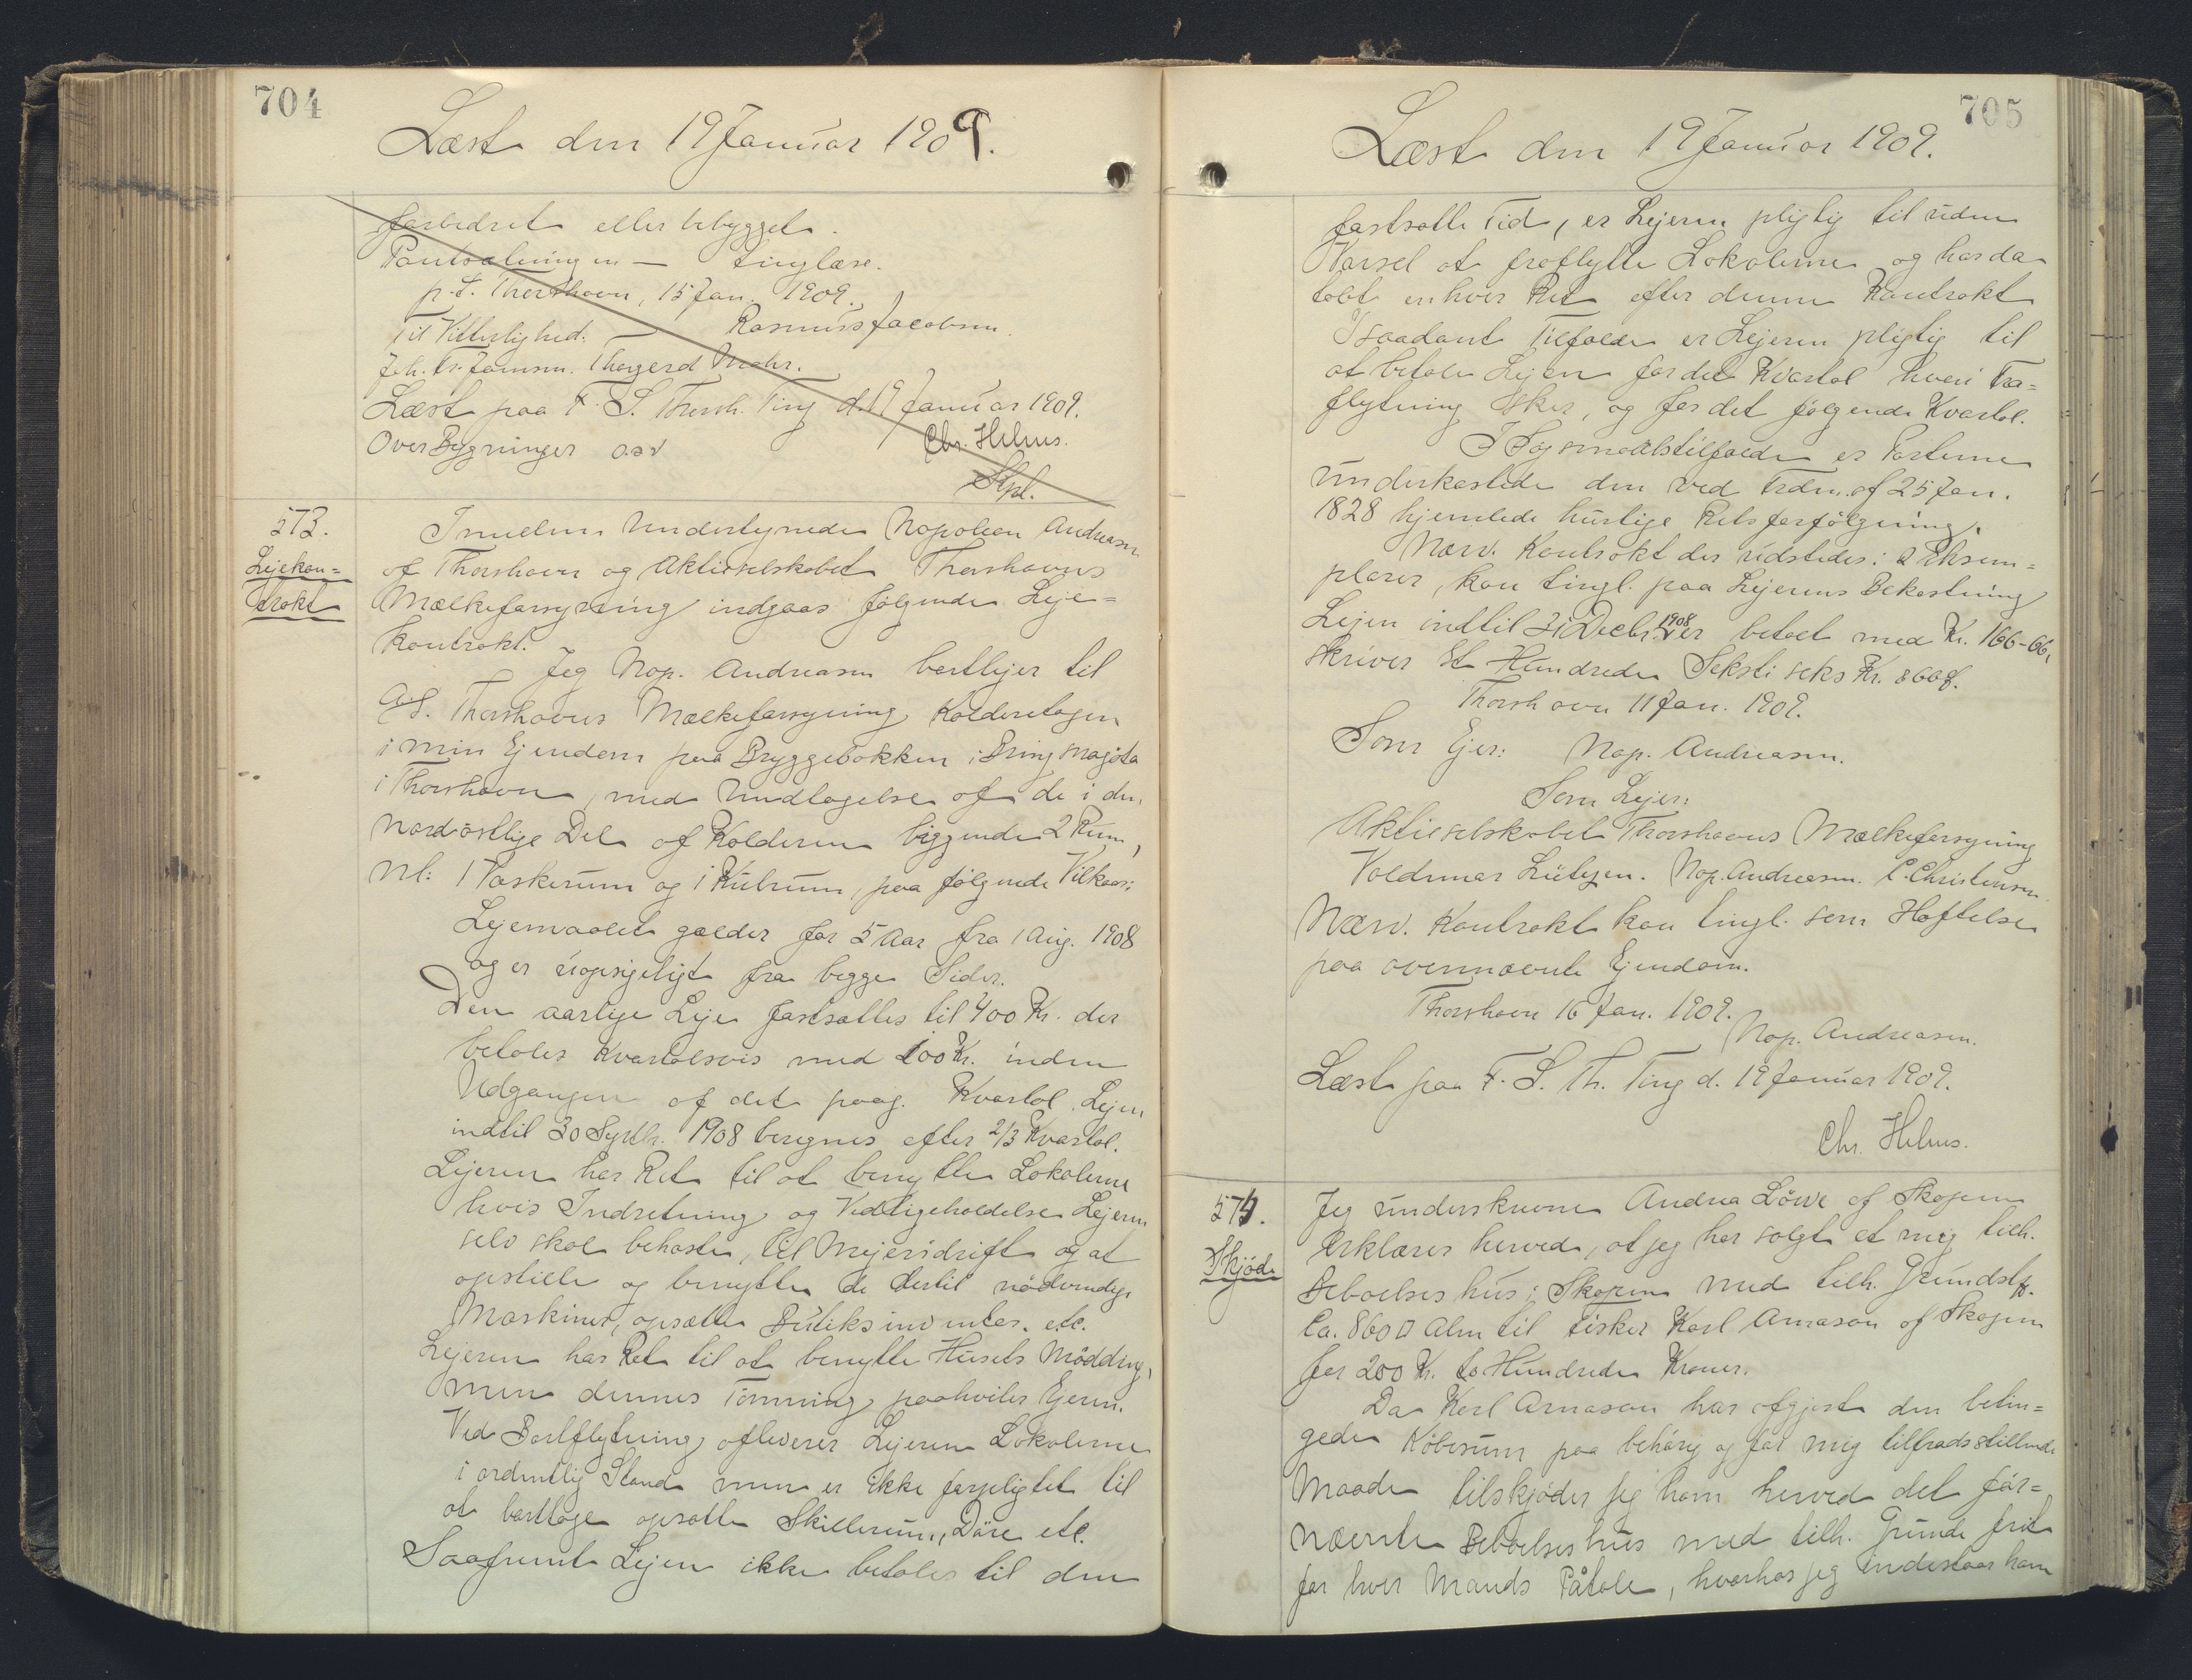 704
Læst den 19 Januar 1909.
forbedret eller bebygget.
Pantsætningen — tinglæse.
p.t. Thorshavn, 15 Jan. 1909.
Til Vitterlighed: — Rasmus Jacobsen.
Joh. Fr. Joensen. Thogerd Mohr.
Læst paa F. S. Thorsh. Ting d. 19 Januar 1909.
Over Bygninger osv Chr. Helms.
573.
Lejekon=
trakt
Imellem Undertegnede Napoleon Andreasen
af Thorshavn og Aktieselskabet Thorshavns
Mælkeforsyning indgaas følgende Leje=
kontrakt.
Jeg Nap. Andreasen bortlejer til
A/S. Thorshavns Mælkeforsyning Kælderetagen
i min Ejendom paa Bryggebakken i Bringsnagöta
i Thorshavn, med Undtagelse af de i den
nordöstlige Del af Kælderen liggende 2 Rum,
Nl: 1 Vaskerum og 1 Kulrum, paa følgende Vilkaar:
Lejemaalet gælder for 5 Aar fra 1 Aug. 1908
og er uopsigeligt fra begge Sider.
Den aarlige Leje fastsættes til 400 Kr. der
betales Kvartalsvis med 100 Kr. inden
Udgangen af det paag. Kvartal. Lejen
indtil 30 Septb. 1908 beregnes efter 2/3 Kvartal.
Lejeren har Ret til at benytte Lokalerne
hvis Indretning og Vedligeholdelse Lejeren
selv skal bekoste, til Mejeridrift og at
opstille og benytte de dertil nödvendige
Maskiner, opsætte Butiksinventar. etc.
Lejeren har Ret til at benytte Husets Mödding,
men dennes Tömning paahviler Ejeren.
Ved Bortflytning afleverer Lejeren Lokalerne
i ordentlig Stand men er ikke forpligtet til
at borttage opsatte Skillerum, Döre etc.
Saafremt Lejen ikke betales til den
705
Læst den 19 Januar 1909.
fastsatte Tid, er Lejeren pligtig til uden
Varsel at fraflytte Lokalerne og har da
tabt enhver Ret efter denne Kontrakt
I saadant Tilfælde er Lejeren pligtig til
at betale Lejen for det Kvartal hvori Fra=
flytning sker, og for det følgende Kvartal.
I Søgsmaalstilfælde er Parterne
underkastede den ved Frdn. af 25 Jan.
1828 hjemlede hurtige Retsforfölgning.
Nærv. Kontrakt der udstedes i 2 Eksem=
plarer, kan tingl. paa Lejerens Bekostning
Lejen indtil 31 Decbr 1908 er betalt med Kr. 166-66,
skriver Et Hundrede Seksti seks Kr. 66 Ø.
Thorshavn 11 Jan. 1909.
Som Ejer: Nap. Andreasen.
Som Lejer:
Aktieselskabet Thorshavns Mælkeforsyning
Valdemar Lützen. Nap. Andreasen. C. Christensen
Nærv. Kontrakt kan tingl. som Hæftelse
paa ovennævnte Ejendom.
Thorshavn 16 Jan. 1909.
Nap. Andreasen.
Læst paa F. S. Th. Ting d. 19 Januar 1909.
Chr. Helms.
574.
Skjöde
Jeg underskrevne Andrea Löwe af Skopen
Erklærer herved, at jeg har solgt et mig tilh.
Beboelseshus i Skopen med tilh. Grundstk.
Ca. 860 □ Alen til Fisker Karl Arnason af Skopen
for 200 Kr. to Hundrede Kroner.
Da Karl Arnason har afgjort den betin=
gede Köbesum paa behörig og for mig tilfredsstillende
Maade tilskjöder jeg ham herved det för=
nævnte Beboelseshus med tilh. Grund frit
for hver Mands Påtale, hvorhos jeg indestaar ham